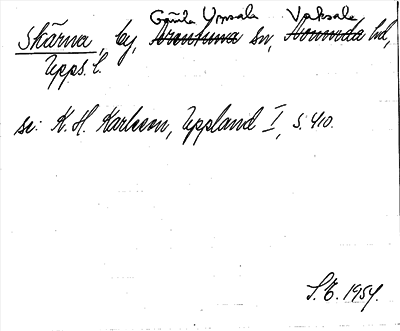 Gamla Upsala Vaksala
Skärna, by, Ärentuna sn, Norunda hd,
Upps. l.
se: K. H. Karlsson, Uppland I, s. 410.
S. E. 1954.